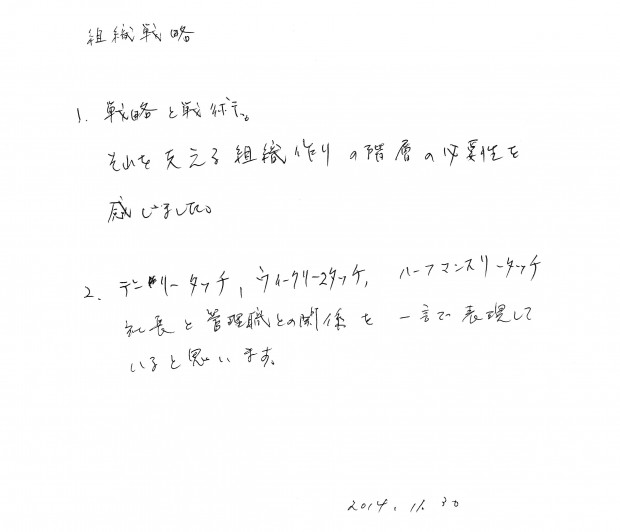 組織戦略
1. 戦略と戦術。
それを支える組織作りの階層の必要性を
感じました。
2. デーリータッチ, ウィークリー2タッチ, ハーフマンスリータッチ
社長と管理職との関係を一言で表現して
いると思います。
2014. 11. 30